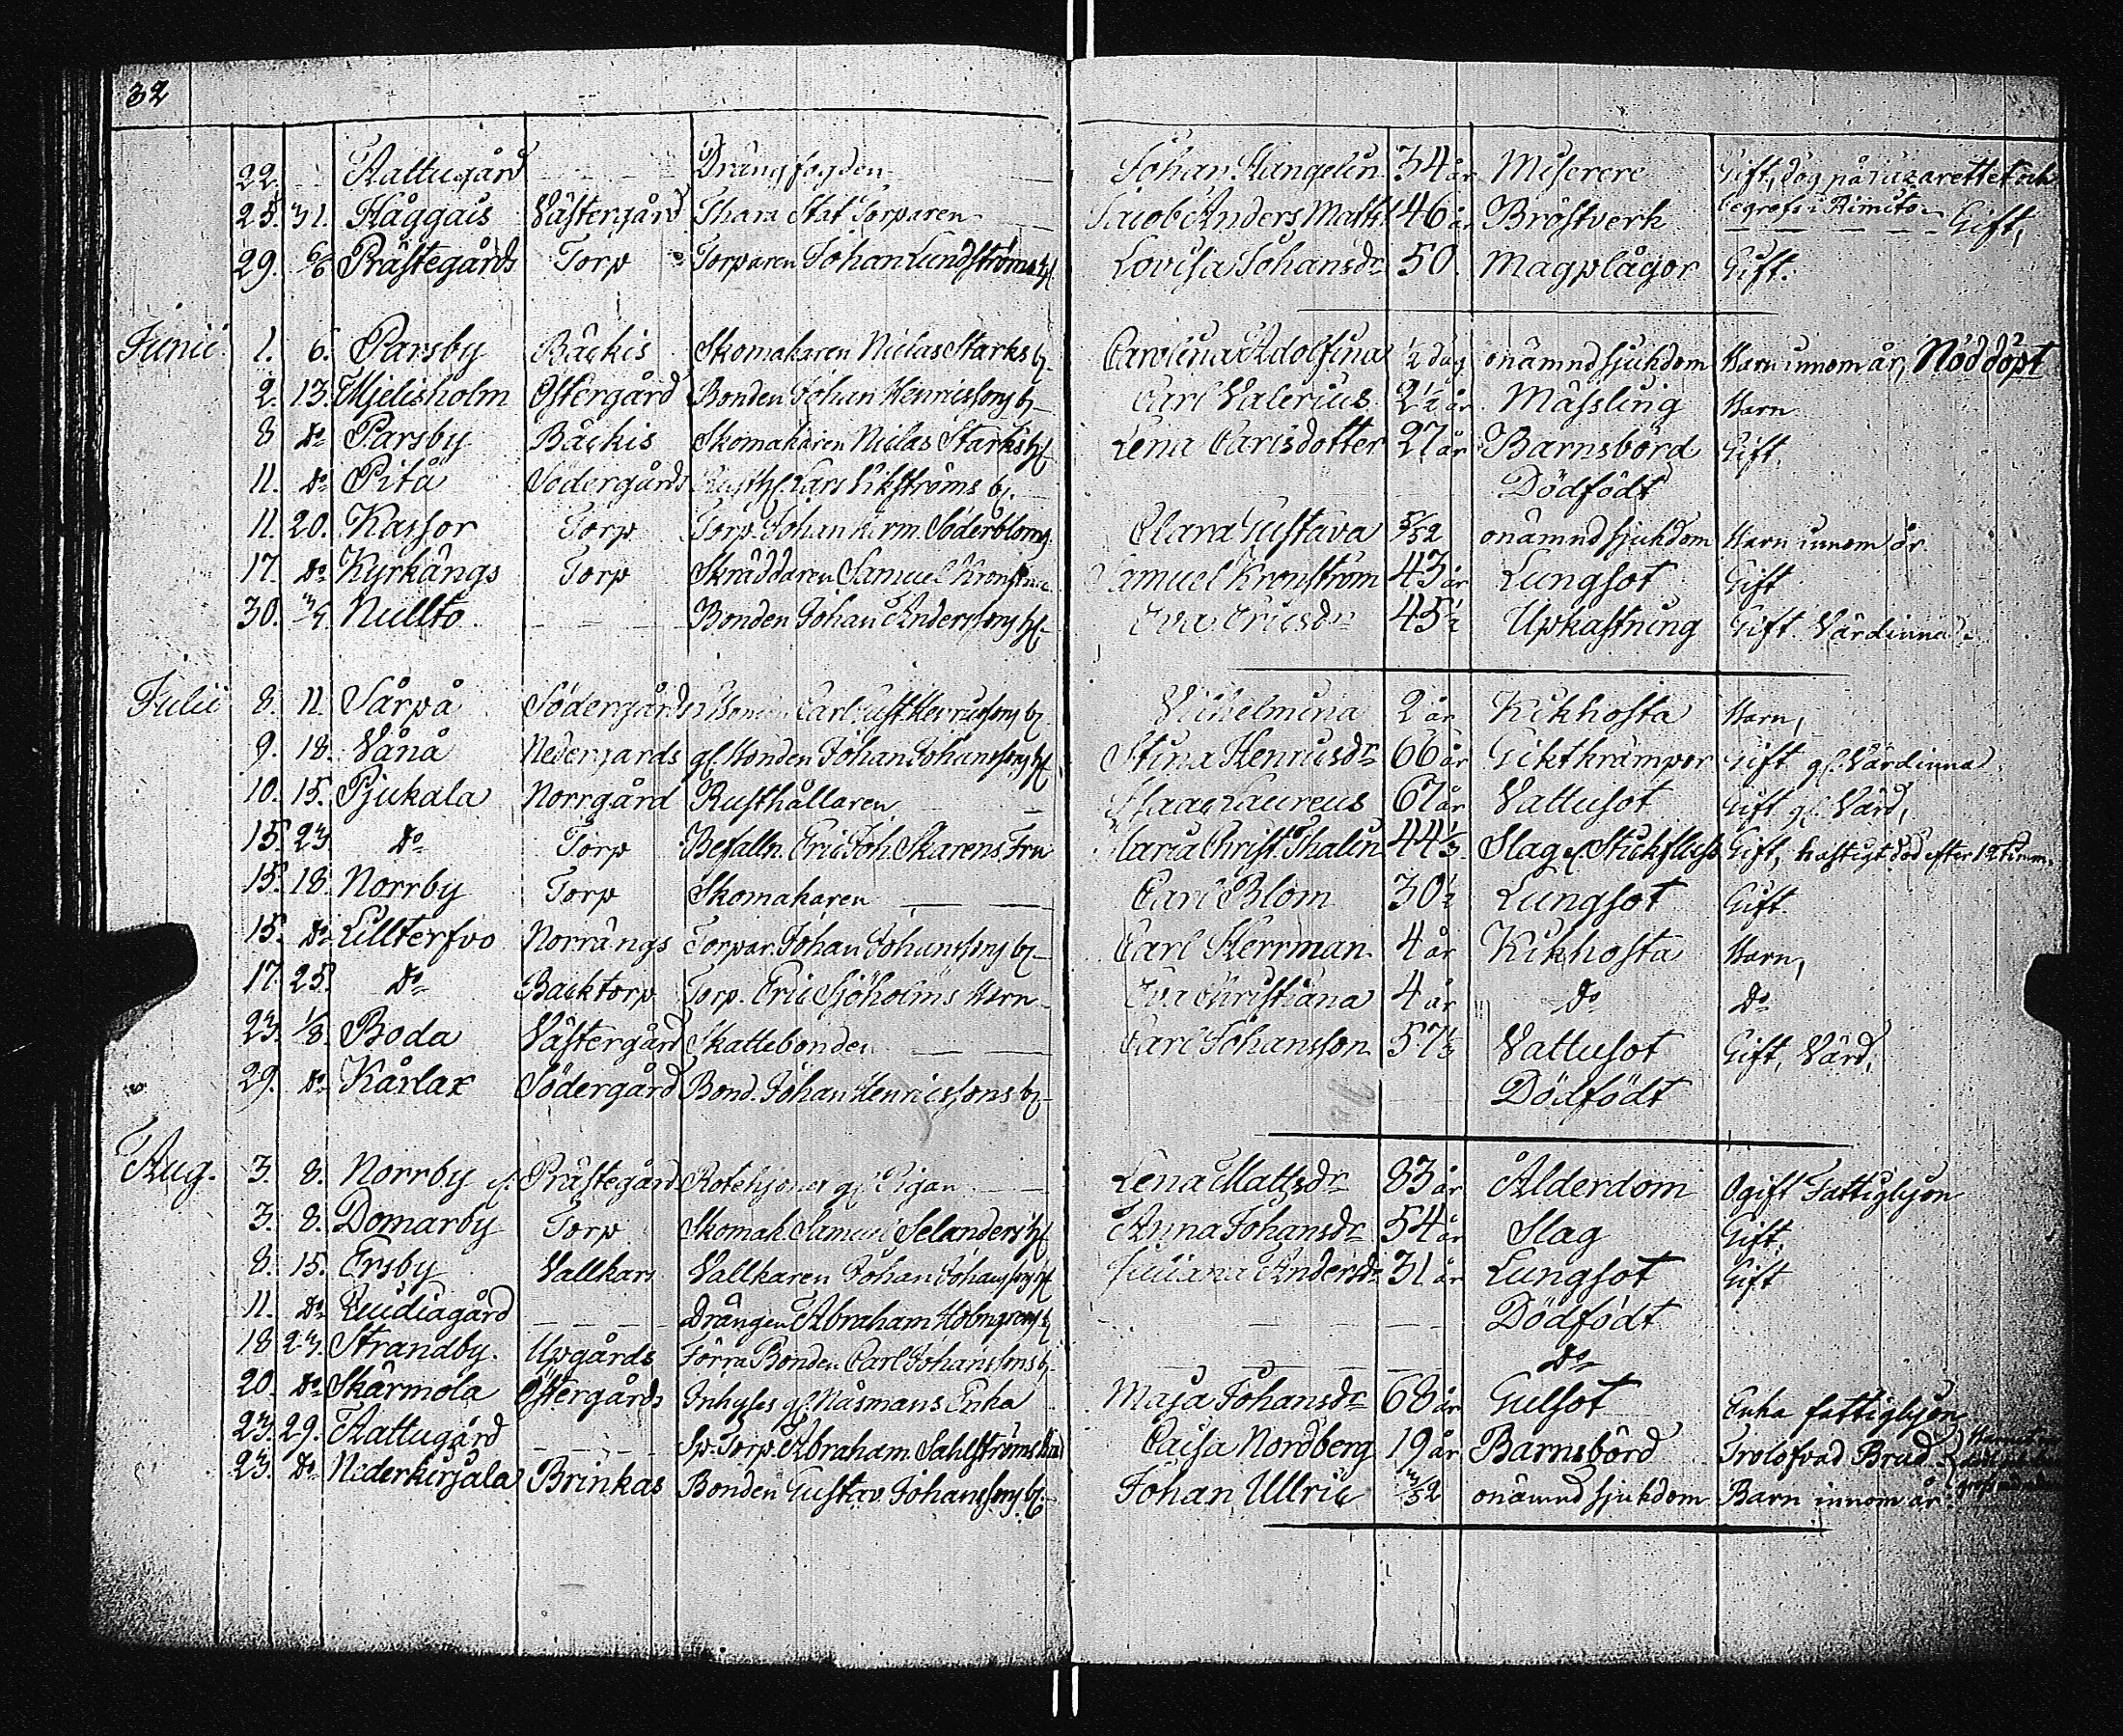 32
22. Attugård Drängfogden Johan Hangelin 34 år Miserere Gift, dog på Lazarettet och
begrofs i Kimito
25. 31. Håggais Västergård Skara Staf Torparen Jacob Anders Matts 46 år Bröstverk Gift,
29. 6/6 Prästegårds Torp Torparen Johan Lundströms h Lovisa Johansdr 50. Magplågor Gift.
Junii 1. 6. Parsby Bäckis Skomakaren Niclas Starks b. Carolina Adolfina ½ dag onämnd sjukdom Barn innom år, Nöddöpt
2. 13. Mjelisholm Östergård Bonden Johan Henricssons b. Carl Valerius 2½ år Mässling Barn
8 Do Parsby Bäckis Skomakaren Niclas Starks h. Lena Carlsdotter 27 år Barnsbörd Gift.
11. Do Pitå Södergård Lars Vikströms b. Dödfödt
11. 20. Kassor Torp Torp. Johan Herm. Söderbloms Clara Gustava 5/52 onämnd sjukdom Barn innom år.
17. Do Kyrkängs Torp Skräddaren Samuel Kronström Samuel Kronström 43 år Lungsot Gift
30. Nullto Bonden Johan Anderssons h. Eva Ericsdr 45½ Upkastning Gift. Värdinna.
Julii 8. 11. Särpå Södergårds Bonden Carl Gust Henricssons b. Vilhelmina 2 år Kikhosta Barn,
9. 18. Vånå Nedergårds gl. Bonden Johan Johanssons h. Stina Henricsdr 66 år Giktkrämpor Gift gl. Värdinna
10. 15. Pjukala Norrgård Rusthållaren Isaac Laureus 67 år Vattusot Gift gl. Värd,
15. 23. Do Torp Befalln. Eric Joh. Skarens Fru Maria Christ. Thalin 44⅓ Slag el. Stickfluss Gift, hastigt död efter 12 timm.
15. 18. Norrby Torp Skomakaren Carl Blom 30½ Lungsot Gift.
15. Do Lillterfvo Norrängs Torpar. Johan Johanssons b. Carl Herrman 4 år Kikhosta Barn,
17. 25. Do Backtorp Torp. Eric Sjöholms Barn Eva Christiana 4 år Do Do
23. 1/8. Boda Västergård Skattebonden Carl Johansson 57½ Vattusot Gift, Värd,
29. Do Kårlax Södergård Bond. Johan Henricssons b. Dödfödt
Aug. 3. 8. Norrby el. Prästegård Rotehjonet gl. Pigan Lena Mattsdr 83 år Ålderdom Ogift Fattighjon
3. 8. Domarby Torp Skomak. Samuel Selanders h Anna Johansdr 54 år Slag Gift.
8. 15. Ersby Vallkars Vallkaren Johan Johanssons h Juliana Andersdr 31 år Lungsot Gift
11. Do Drängen Abraham b Dödfödt
18. 23. Strandby. Upgårds Förra Bonden Carl Johanssons b. Do
20. Do Skärmola Östergårds Inhyses gl. Måsmans Enka Maja Johansdr 68 år Gulsot Enka fattighjon
23. 29. Attugård Sp. Torp. Abraham Sahlströms Caisa Nordberg 19 år Barnsbörd Trolofvad Brud
23. Do Nederkirjala Brinkas Bonden Gustav Johanssons b. Johan Ullric 3/52 onämnd sjukdom Barn innom år